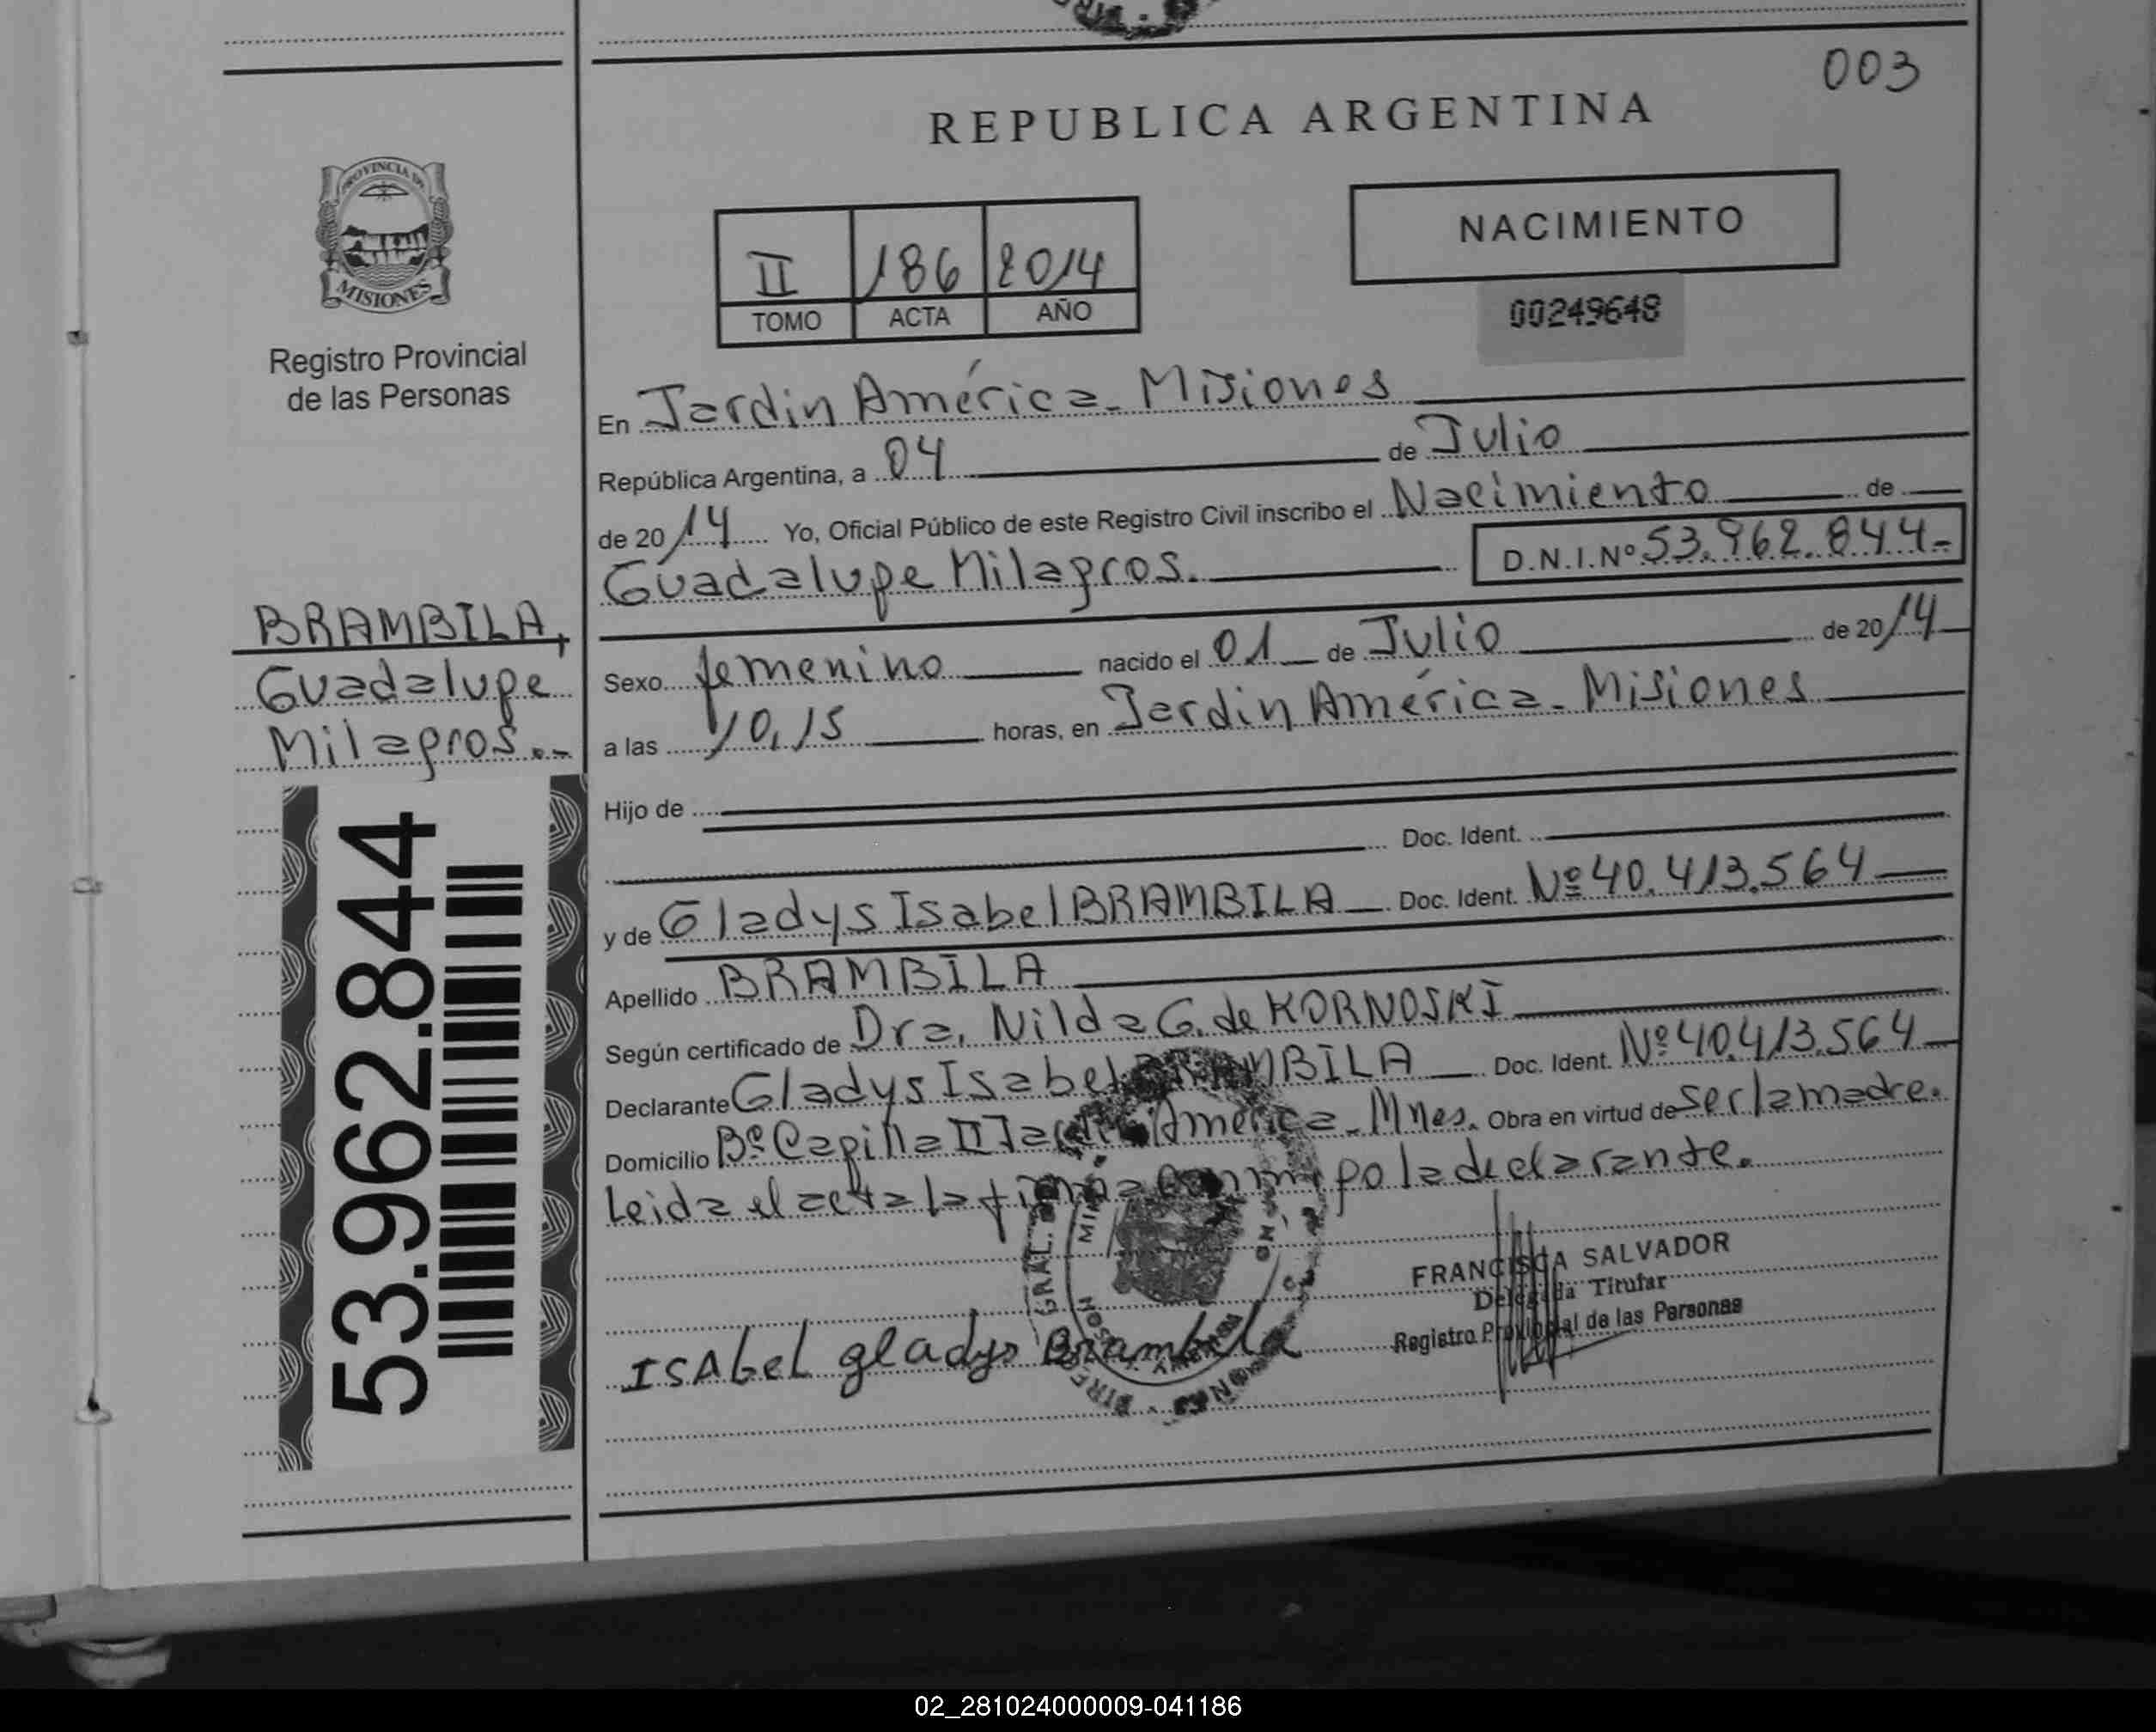 003
REPUBLICA ARGENTINA
PROVINCIA DE
MISIONES
Registro Provincial
de las Personas
NACIMIENTO
II 186 2014
TOMO ACTA AÑO
00249648
En Jardin América - Misiones
República Argentina, a 04 de Julio
de 2014 Yo, Oficial Público de este Registro Civil inscribo el Nacimiento de
Guadalupe Milagros. D.N.I.Nº 53.962.844-
BRAMBILA,
Guadalupe
Milagros.-
53.962.844
Sexo femenino nacido el 01 de Julio de 2014
a las 10,15 horas, en Jardin América - Misiones
Hijo de
Doc. Ident.
y de Gladys Isabel BRAMBILA Doc. Ident. Nº 40.413.564
Apellido BRAMBILA
Según certificado de Dra. Nilda G. de KORNOSKI
Declarante Gladys Isabel BRAMBILA Doc. Ident. Nº 40.413.564
Domicilio Bº Capilla II Jardin América - Mnes. Obra en virtud de ser la madre.
Leida el acta la firma conmigo la declarante.
FRANCISCA SALVADOR
Delegada Titular
Registro Provincial de las Personas
ISAbel gladys Brambila
02_281024000009-041186